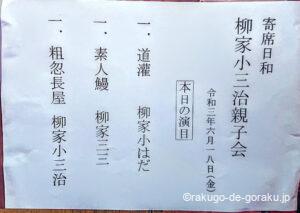 寄席日和
柳家小三治親子会
令和三年六月一八日(金)
本日の演目
一．道灌　柳家小はだ
一．素人鰻　柳家三三
一．粗忽長屋　柳家小三治
©rakugo-de-goraku.jp